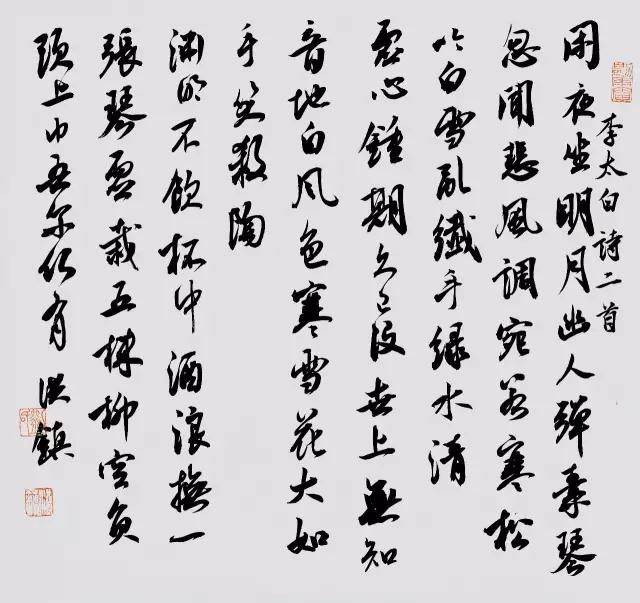 李太白詩二首
閑夜坐明月幽人彈素琴
忽聞悲風調宛若寒松
吟白雪亂纖手綠水清
虛心鍾期久已沒世上無知
音地白風色寒雪花大如
手笑殺陶
淵明不飲杯中酒浪撫一
張琴虛栽五株柳空負
頭上巾吾尔何有 洪鎮